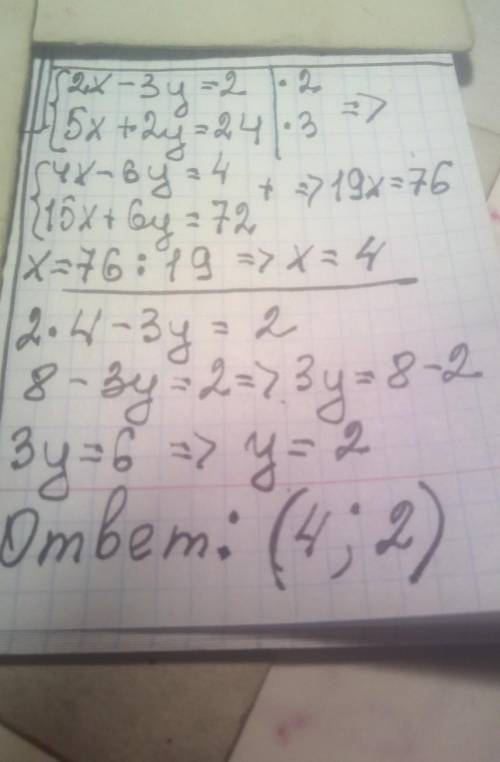 {2x - 3y = 2 | · 2
{5x + 2y = 24 | · 3 =>
{4x - 6y = 4
{15x + 6y = 72 + => 19x = 76
x = 76 : 19 => x = 4
2 · 4 - 3y = 2
8 - 3y = 2 => 3y = 8 - 2
3y = 6 => y = 2
Ответ: (4; 2)